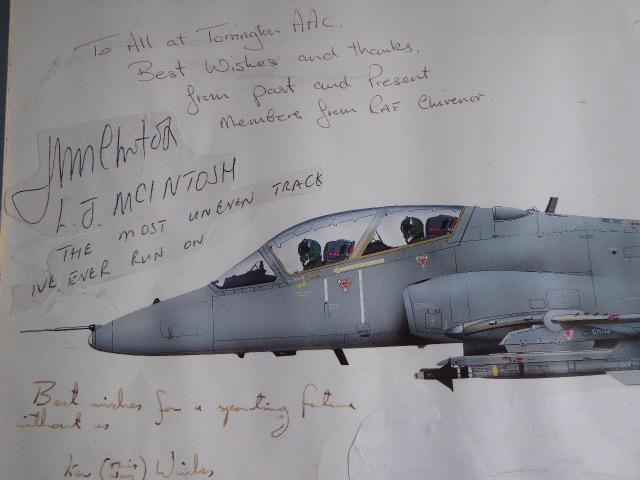 To All at Torrington AAC.
Best Wishes and thanks,
from past and Present
Members from RAF Chivenor.
L. J. MCINTOSH
THE MOST UNEVEN TRACK
IVE EVER RUN ON
Best wishes for a sporting future
without us
Ken (This Way)